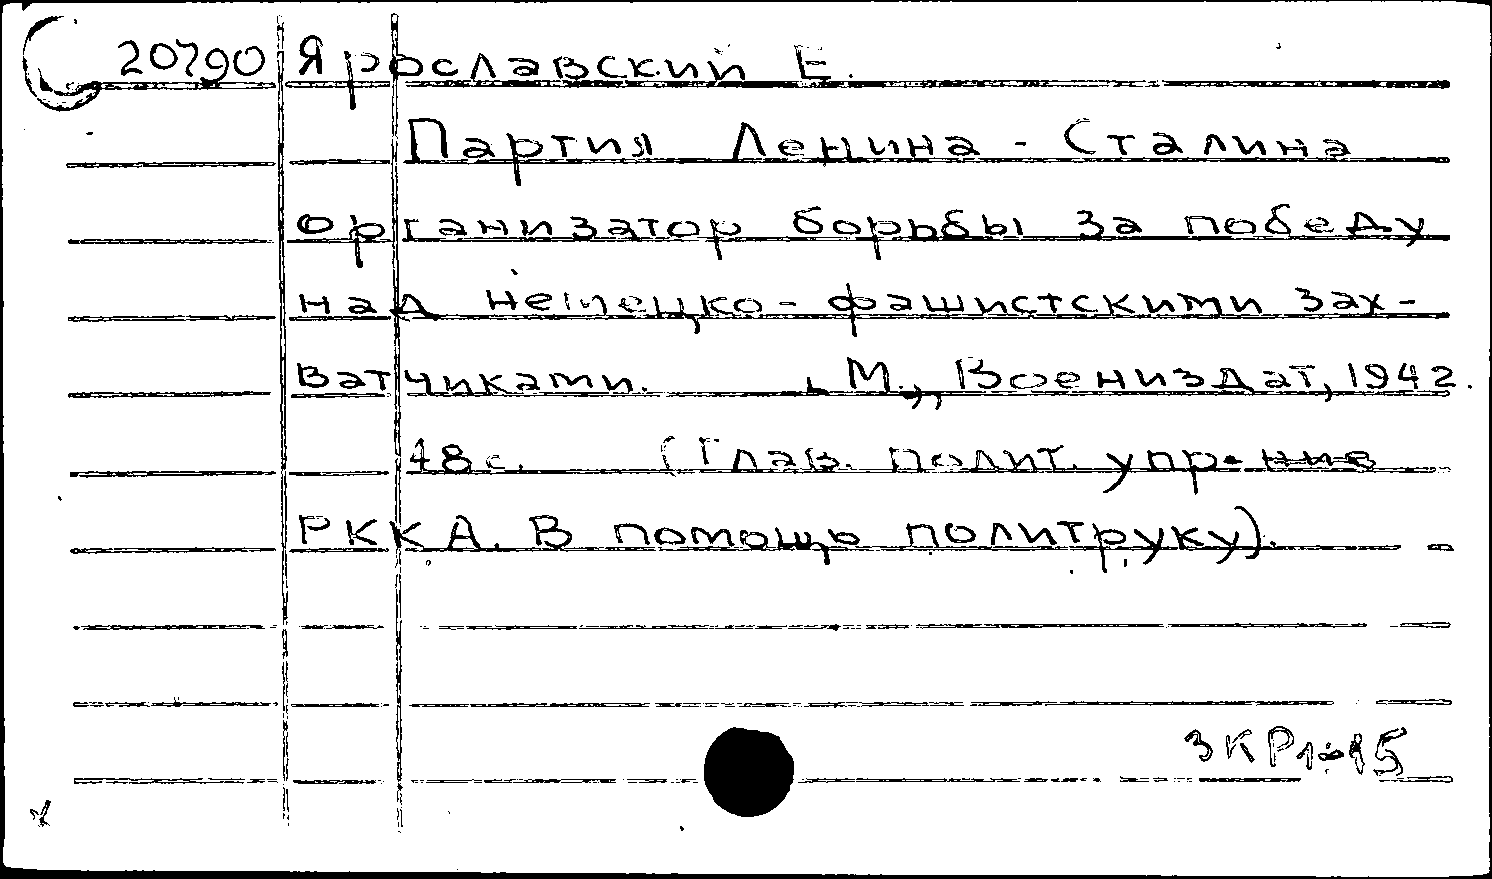 20790 Ярославский Е.
Партия Ленина - Сталина
организатор борьбы за победу
над немецко-фашистскими зах-
ватчиками. М., Воениздат, 1942.
48 с. (Глав. полит. упр-ние
РККА. В помощь политруку).
3КР1-15